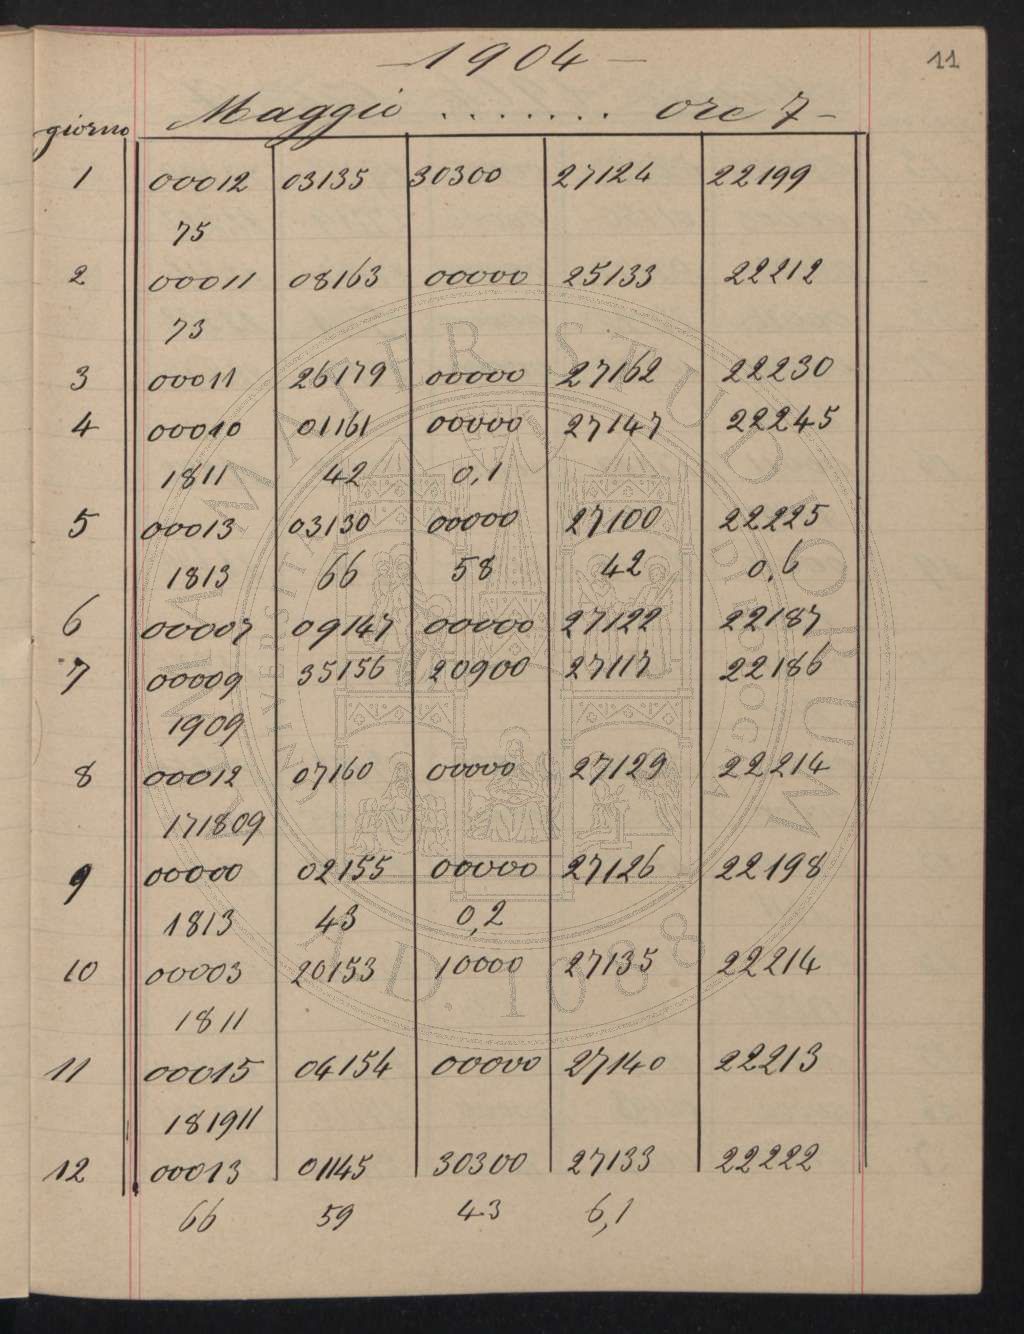 11
1904
Maggio ........ ore 7
giorno
1 00012 03135 30300 27124 22199
75
2 00011 08163 00000 25133 22212
73
3 00011 26179 00000 27162 22230
4 00010 01161 00000 27147 22245
1811 42 0,1
5 00013 03130 00000 27100 22225
1813 66 58 42 0,6
6 00007 09147 00000 27122 22187
7 00009 35156 20900 27117 22186
1909
8 00012 07160 00000 27129 22214
171809
9 00000 02155 00000 27126 22198
1813 43 0,2
10 00003 20153 10000 27135 22214
1811
11 00015 04154 00000 27140 22213
181911
12 00013 01145 30300 27133 22222
66 59 43 6,1
ALMA MATER STUDIORUM
A.D. 1088